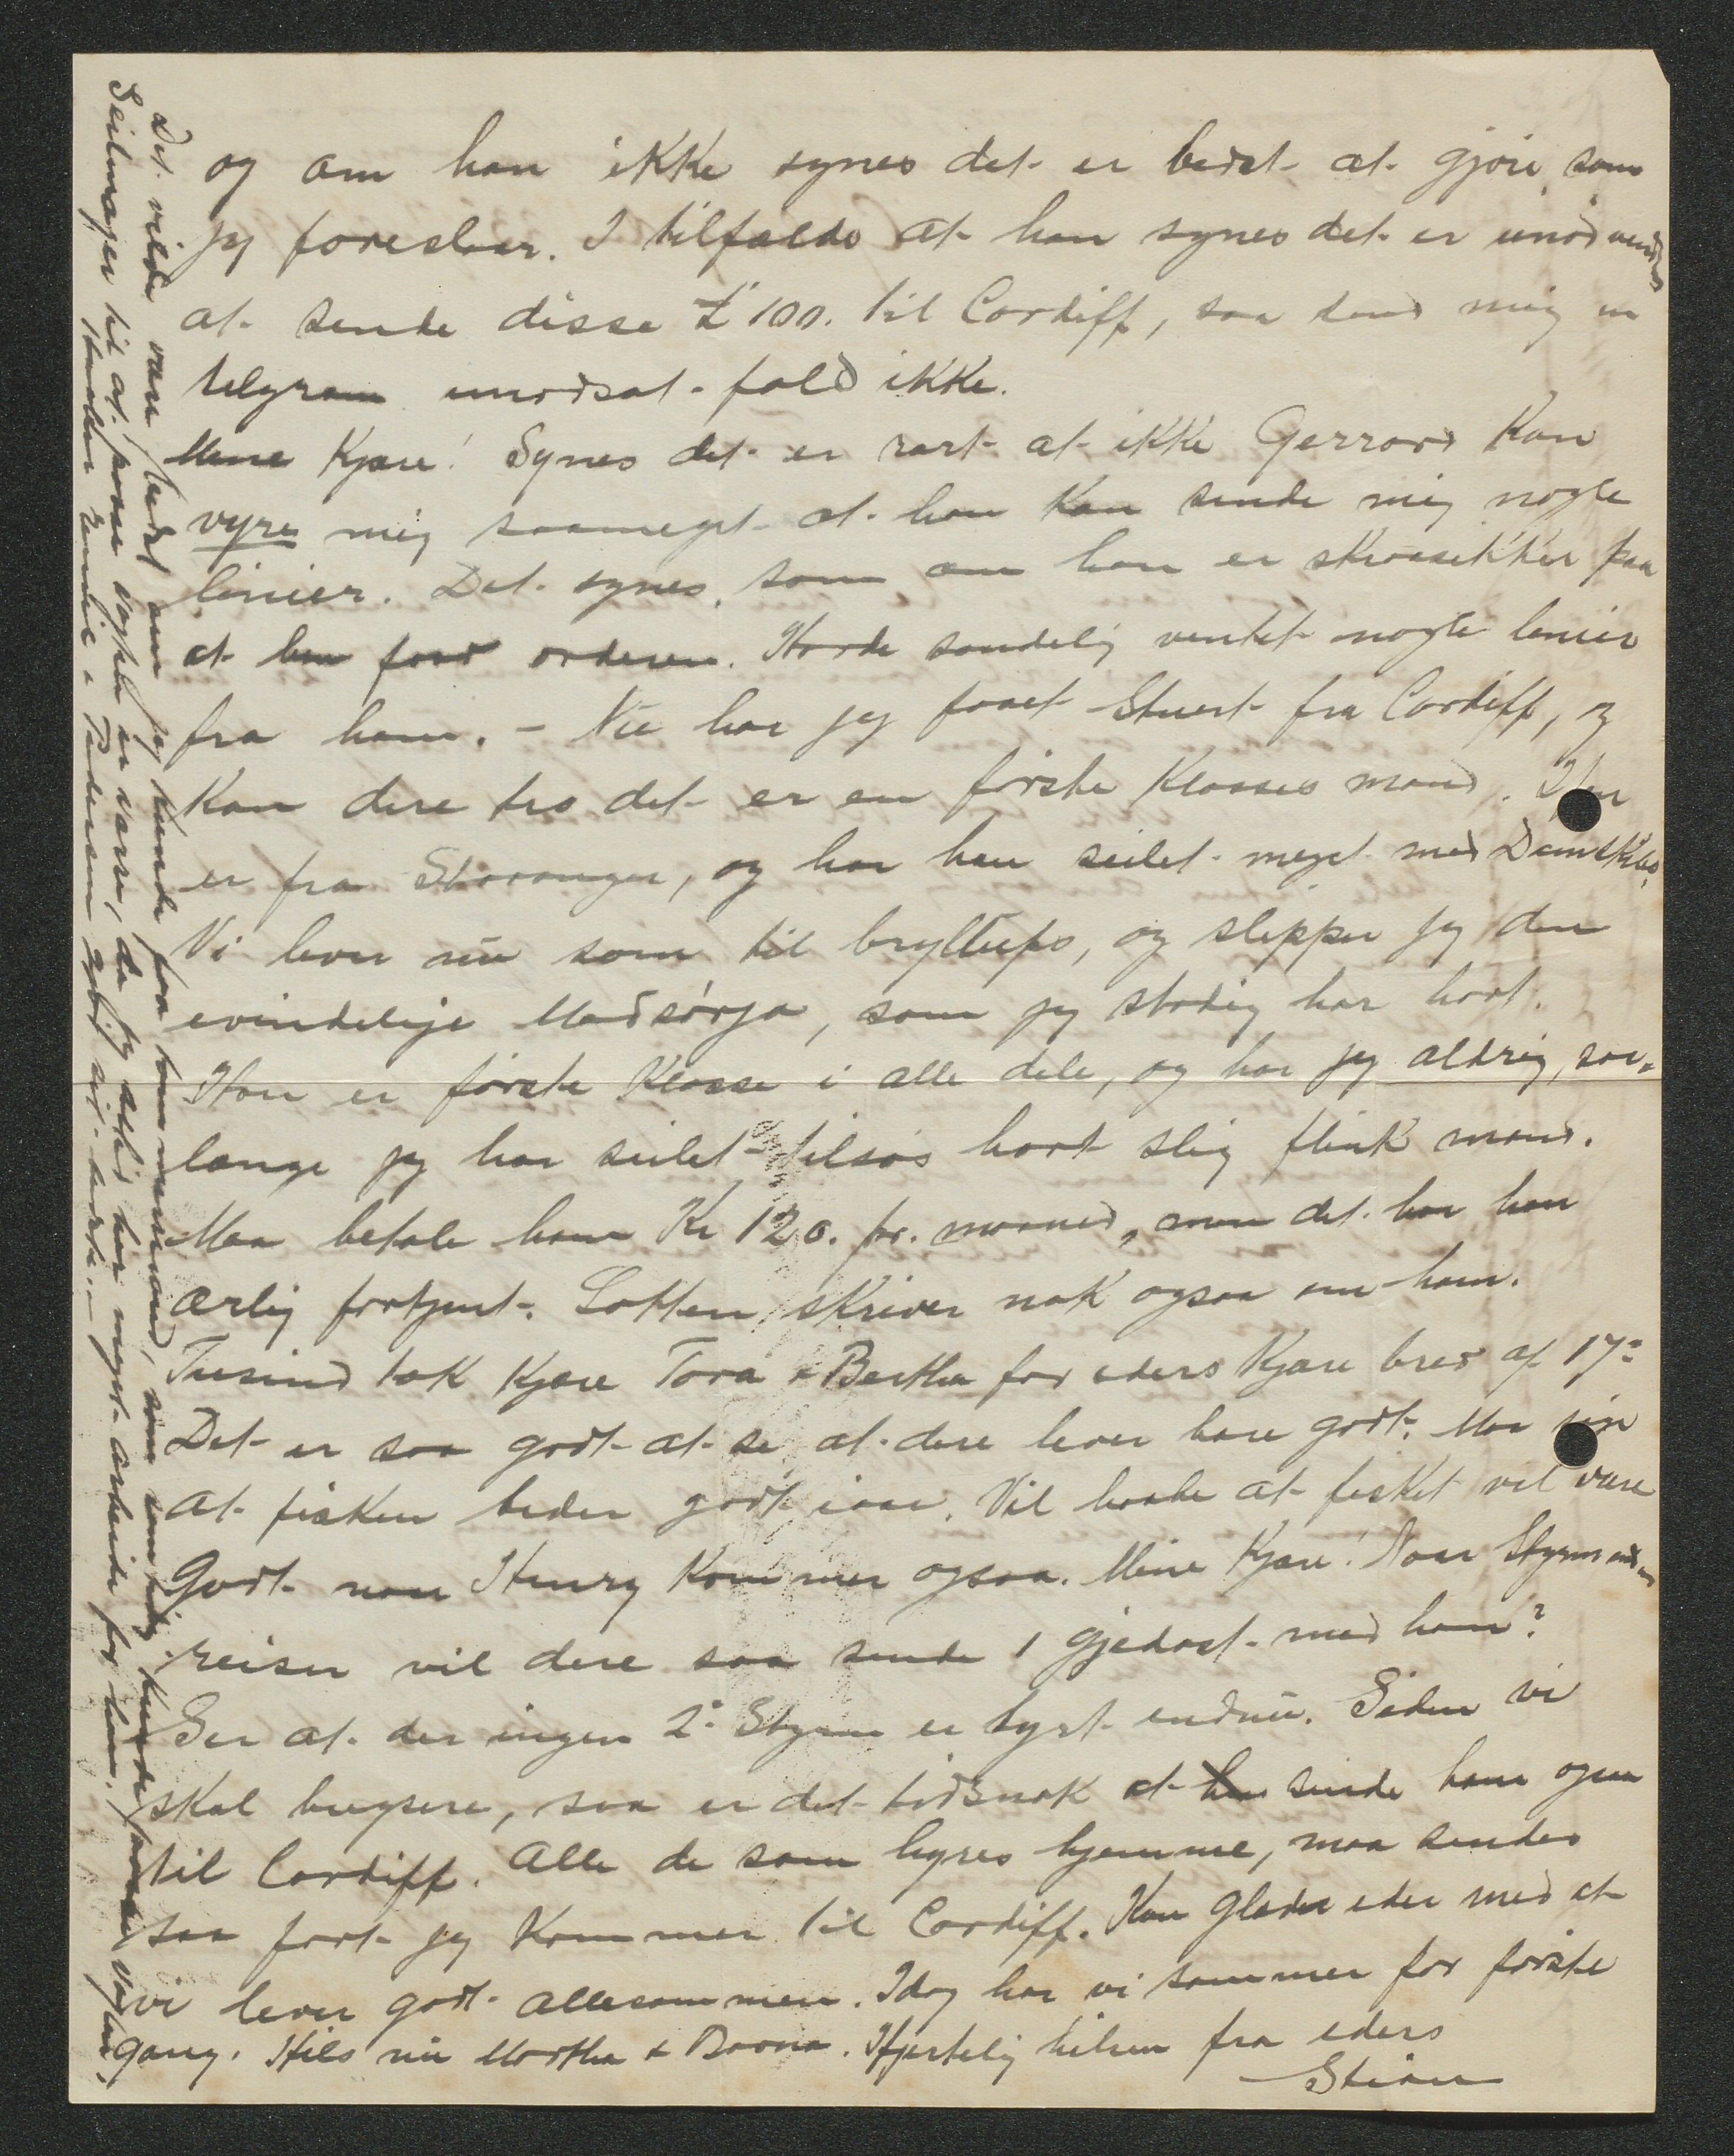 og om han ikke synes det er bedst at gjøre, som
jeg foreslaar. I tilfælde at han synes det er unødvendig
at sende disse £ 100. til Cardiff, saa send mig en
telegram modsat-fald ikke.
Mine Kjære! Synes det er rart at ikke Gerrard Kan
vyre mig saameget at han Kan sende mig nogle
linier. Det synes, som om han er skraasikker paa
at han faar orderen. Havde sandelig ventet nogle linier
fra ham. – Nu har jeg faaet Stuert fra Cardiff, og
Kan dere tro det er en første Klasses mand. Han
er fra Stavanger, og har han seilet meget med Damskibe.
Vi lever nu som til bryllups, og slipper jeg den
evindelige Madsørja, som jeg stadig har havt.
Han er første Klasse i alle dele, og har jeg aldrig, saa-
længe jeg har seilet tilsøs havt slig flink mand.
Maa betale ham Kr 120. pr. maaned, men det har han
ærlig fortjent. Lotten skriver nok ogsaa om ham.
Tusind tak Kjære Tora & Bertha for eders Kjære brev af 17de
Det er saa godt at se at dere lever bare godt. Moro
at fisken beder godt iaar. Vil haabe at fisket vil være
Godt naar Henry Kommer ogsaa. Mine Kjære! Naar Styrmanden
reiser vil dere saa sende 1 gjedost med ham?
Ser at der ingen 2den Styrm er hyrt endnu. Siden vi
skal bugsere, saa er det tidsnok at sende ham ogsaa
til Cardiff. Alle de som hyres hjemme, maa sendes
saa fort jeg Kommer til Cardiff. Kan glæde eder med at
vi lever godt allesammen. Idag har vi sommer for første
gang. Hils nu Martha & Barna. Hjertelig hilsen fra eders
Stian
Det vilde være bedst om jeg kunde faa tømmermand, som samtidig kunde passe Vagten,
Seilmager til at passe vagten er værre, da jeg altid har meget arbeide for ham.